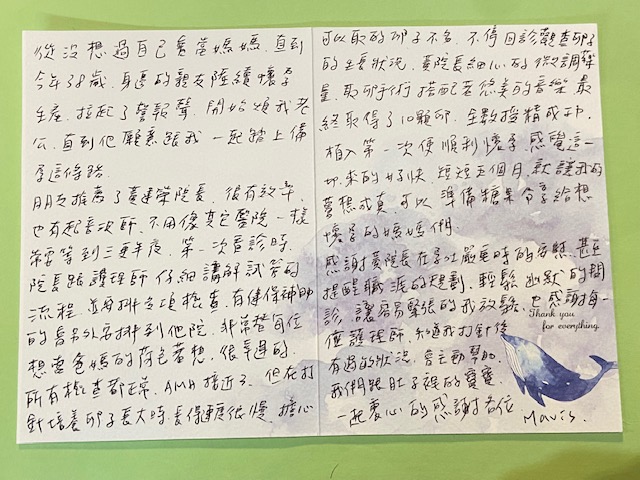 從沒想過自己會當媽媽，直到
今年38歲，身邊的親友陸續懷孕
生產，拉起了警報聲，開始煩我老
公，直到他願意跟我一起踏上備
孕這條路。
朋友推薦了黃建榮院長，很有效率，
也有超長次師，不用像其它醫院一樣
需等到三更半夜，第一次看診時，
院長跟護理師仔細講解試管的
流程，並安排各項檢查，有健保補助
的會另外安排到他院，非常替每位
想要爸媽的荷包著想，很幸運的，
所有檢查都正常，AMH接近3，但在打
針培養卵子長大時，長得速度很慢，擔心
可以取的卵子不多，不停回診觀查卵子
的生長狀況，黃院長細心的微調藥
量，取卵手術搭配著悠美的音樂，最
終取得了10顆卵，全數授精成功，
植入第一次便順利懷孕，感覺這一
切來的好快，短短五個月，就讓我的
夢想成真，可以準備糖果分享給想
懷孕的媽媽們。
感謝黃院長在孕吐嚴重時的安慰，甚至
提醒職涯的規劃，輕鬆幽默的問
診，讓容易緊張的我放鬆，也感謝每一
位護理師，知道我打針後
有過的狀況，會主動幫忙，
我們跟肚子裡的寶寶
一起衷心的感謝各位
Mavis.
Thank you
for everything.